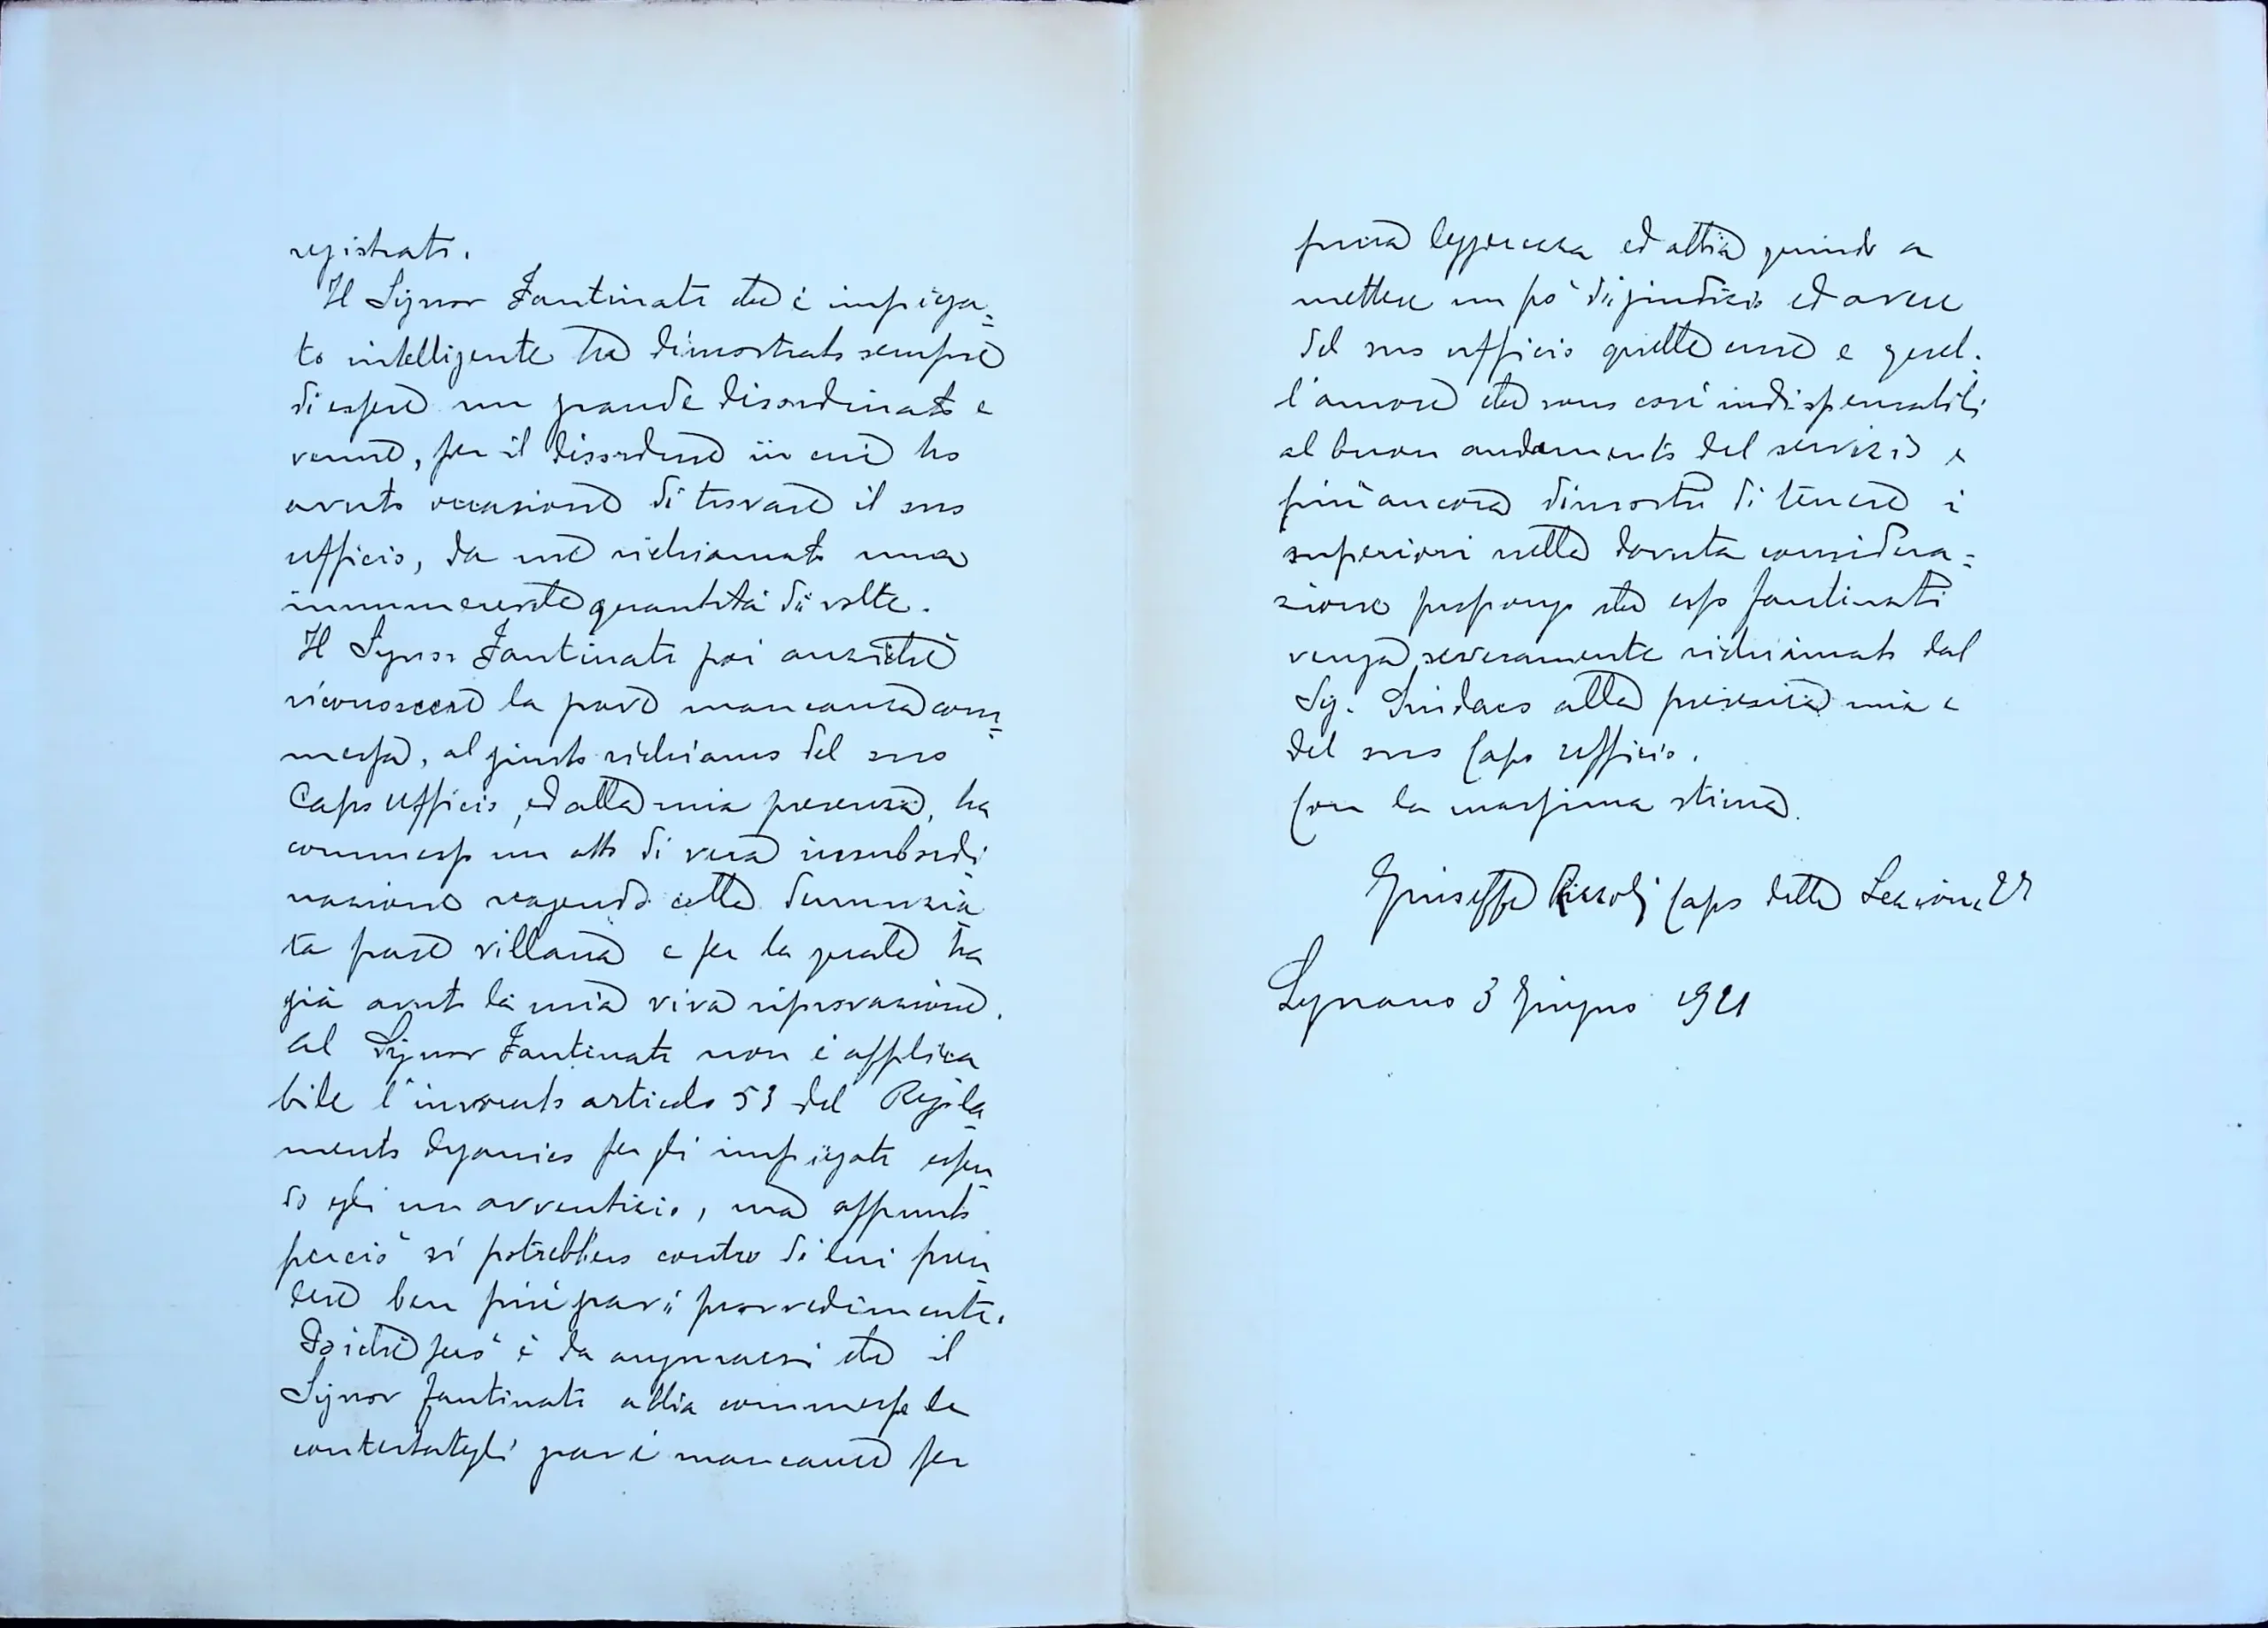 registrati.
Il Signor Fantinati che è impiega=
to intelligente ha dimostrato sempre
di essere un grande disordinato e
venne, per il disordine in cui ho
avuto occasione di trovare il suo
ufficio, da me richiamato una
innumerevole quantità di volte.
Il Signor Fantinati poi anzichè
riconoscere la grave mancanza com=
messa, al giusto richiamo del suo
Capo Ufficio, ed alla mia presenza, ha
commesso un atto di vera insubordi=
nazione reagendo colla denunzia
ta frase villana e per la quale ha
già avuto la mia viva riprovazione.
Al Signor Fantinati non è applica
bile l'invocato articolo 53 del Regola=
mento Organico per gli impiegati essen=
do egli un avventizio, ma appunto
perciò si potrebbero contro di lui pren=
dere ben più gravi provvedimenti.
Poichè però è da augurarsi che il
Signor Fantinati abbia commesse le
contestategli gravi mancanze per
pura leggerezza ed abbia quindi a
mettere un pò di giudizio ed avere
del suo ufficio quelle cure e quel=
l'amore che sono così indispensabili
al buon andamento del servizio e
più ancora dimostri di tenere i
superiori nella dovuta considera=
zione propongo che esso Fantinati
venga severamente richiamato dal
Sig. Sindaco alla presenza mia e
del suo Capo ufficio.
Con la massima stima.
Giuseppe Rizzoli Capo della Sezione
Legnano 3 Giugno 1921